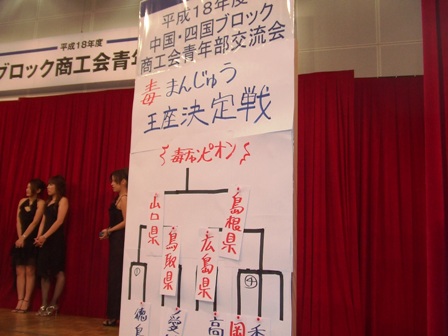 平成18年度
ブロック商工会青年
平成18年度
中国・四国ブロック
商工会青年部交流会
毒まんじゅう
王座決定戦
毒チャンピオン
山口県
鳥取県
広島県
島根県
①
④
徳島
愛
高
香